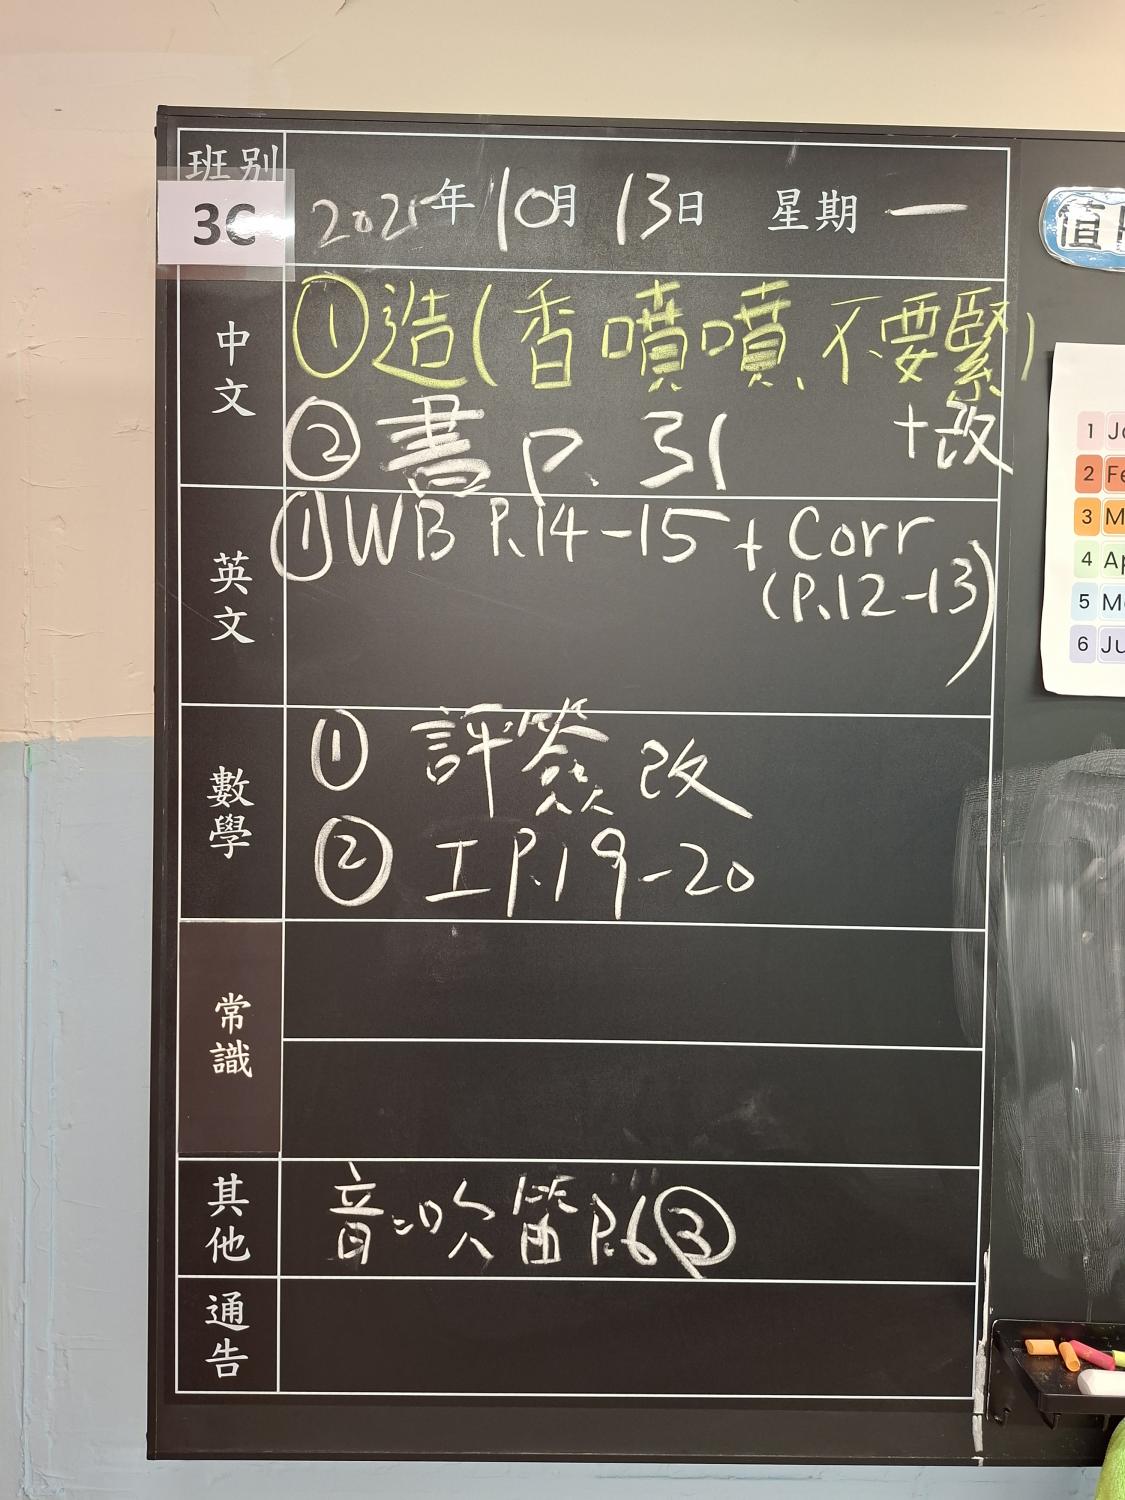 班別
3C
2025年10月13日 星期一
中文
①造(香噴噴、不要緊)
②書P.31 +改
英文
①WB P.14-15 + Corr
(P.12-13)
數學
① 評簽改
② 工P.19-20
常識
其他
音:吹笛P.6③
通告
值
1 Ja
2 Fe
3 M
4 Ap
5 Ma
6 Ju